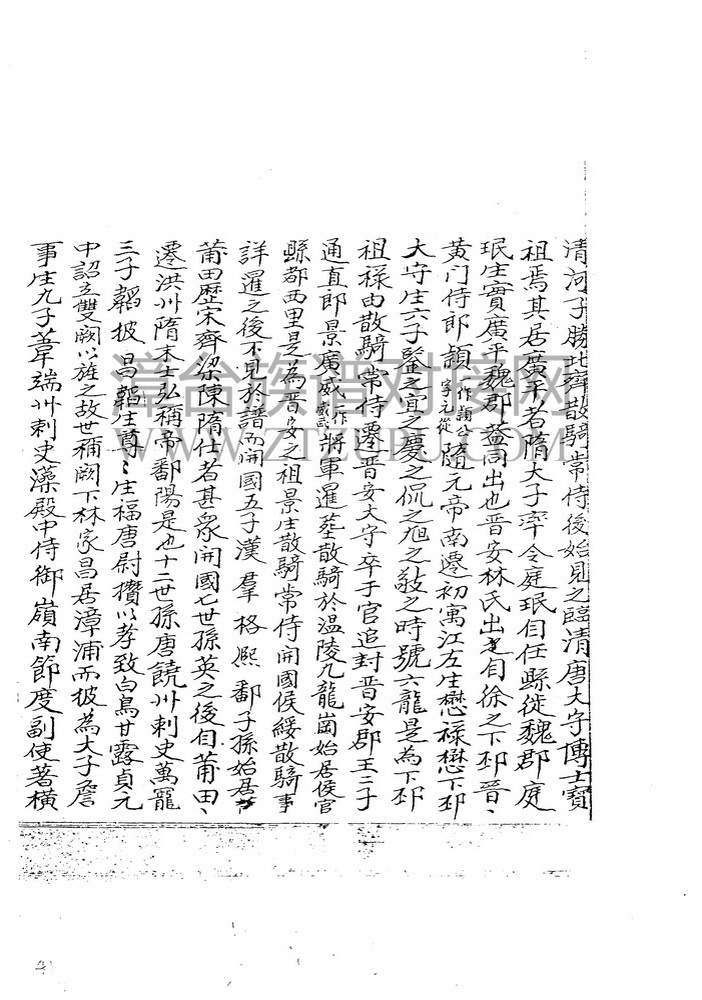 清河子勝北齊散騎常侍後始見之臨清唐大字傳士寶
祖焉其居廣平者隋大子率令庭珉自任縣徙魏郡庭
珉生實廣平魏郡蓋同出也晉安林氏出之自徐之下邳晉、
黃门侍郎頴一作頴公字元從隨元帝南遷初寓江左生懋禄懋下邳
大守生六子鑒之宜之慶之侃之旭之敍之時號六龍是為下邳
祖祿由散騎常侍遷晉安大守卒于官追封晉安郡王二子
通直郎景廣威一作威武將軍暹塟散騎於溫陵九龍崗始居侯官
縣都西里是為晉安之祖景生散騎常侍開國侯綏散騎事
詳暹之後不見於譜而開國五子漢羣格熙鄱子孫始居莆
莆田歷宋齊梁陳隋仕者甚衆開國七世孫英之後自莆田、
遷洪州隋末士弘稱帝鄱陽是也十二世孫唐饒州刺史萬寵
三子韜披昌韜生尊〻生福唐尉攢以孝致白烏甘露貞元
中詔立雙闕以旌之故世稱闕下林家昌居漳浦而披為大子詹
事生九子葦端州刺史藻殿中侍御嶺南節度副使著横
漳台族谱对接网
WWW.ZTZUPU.COM
4